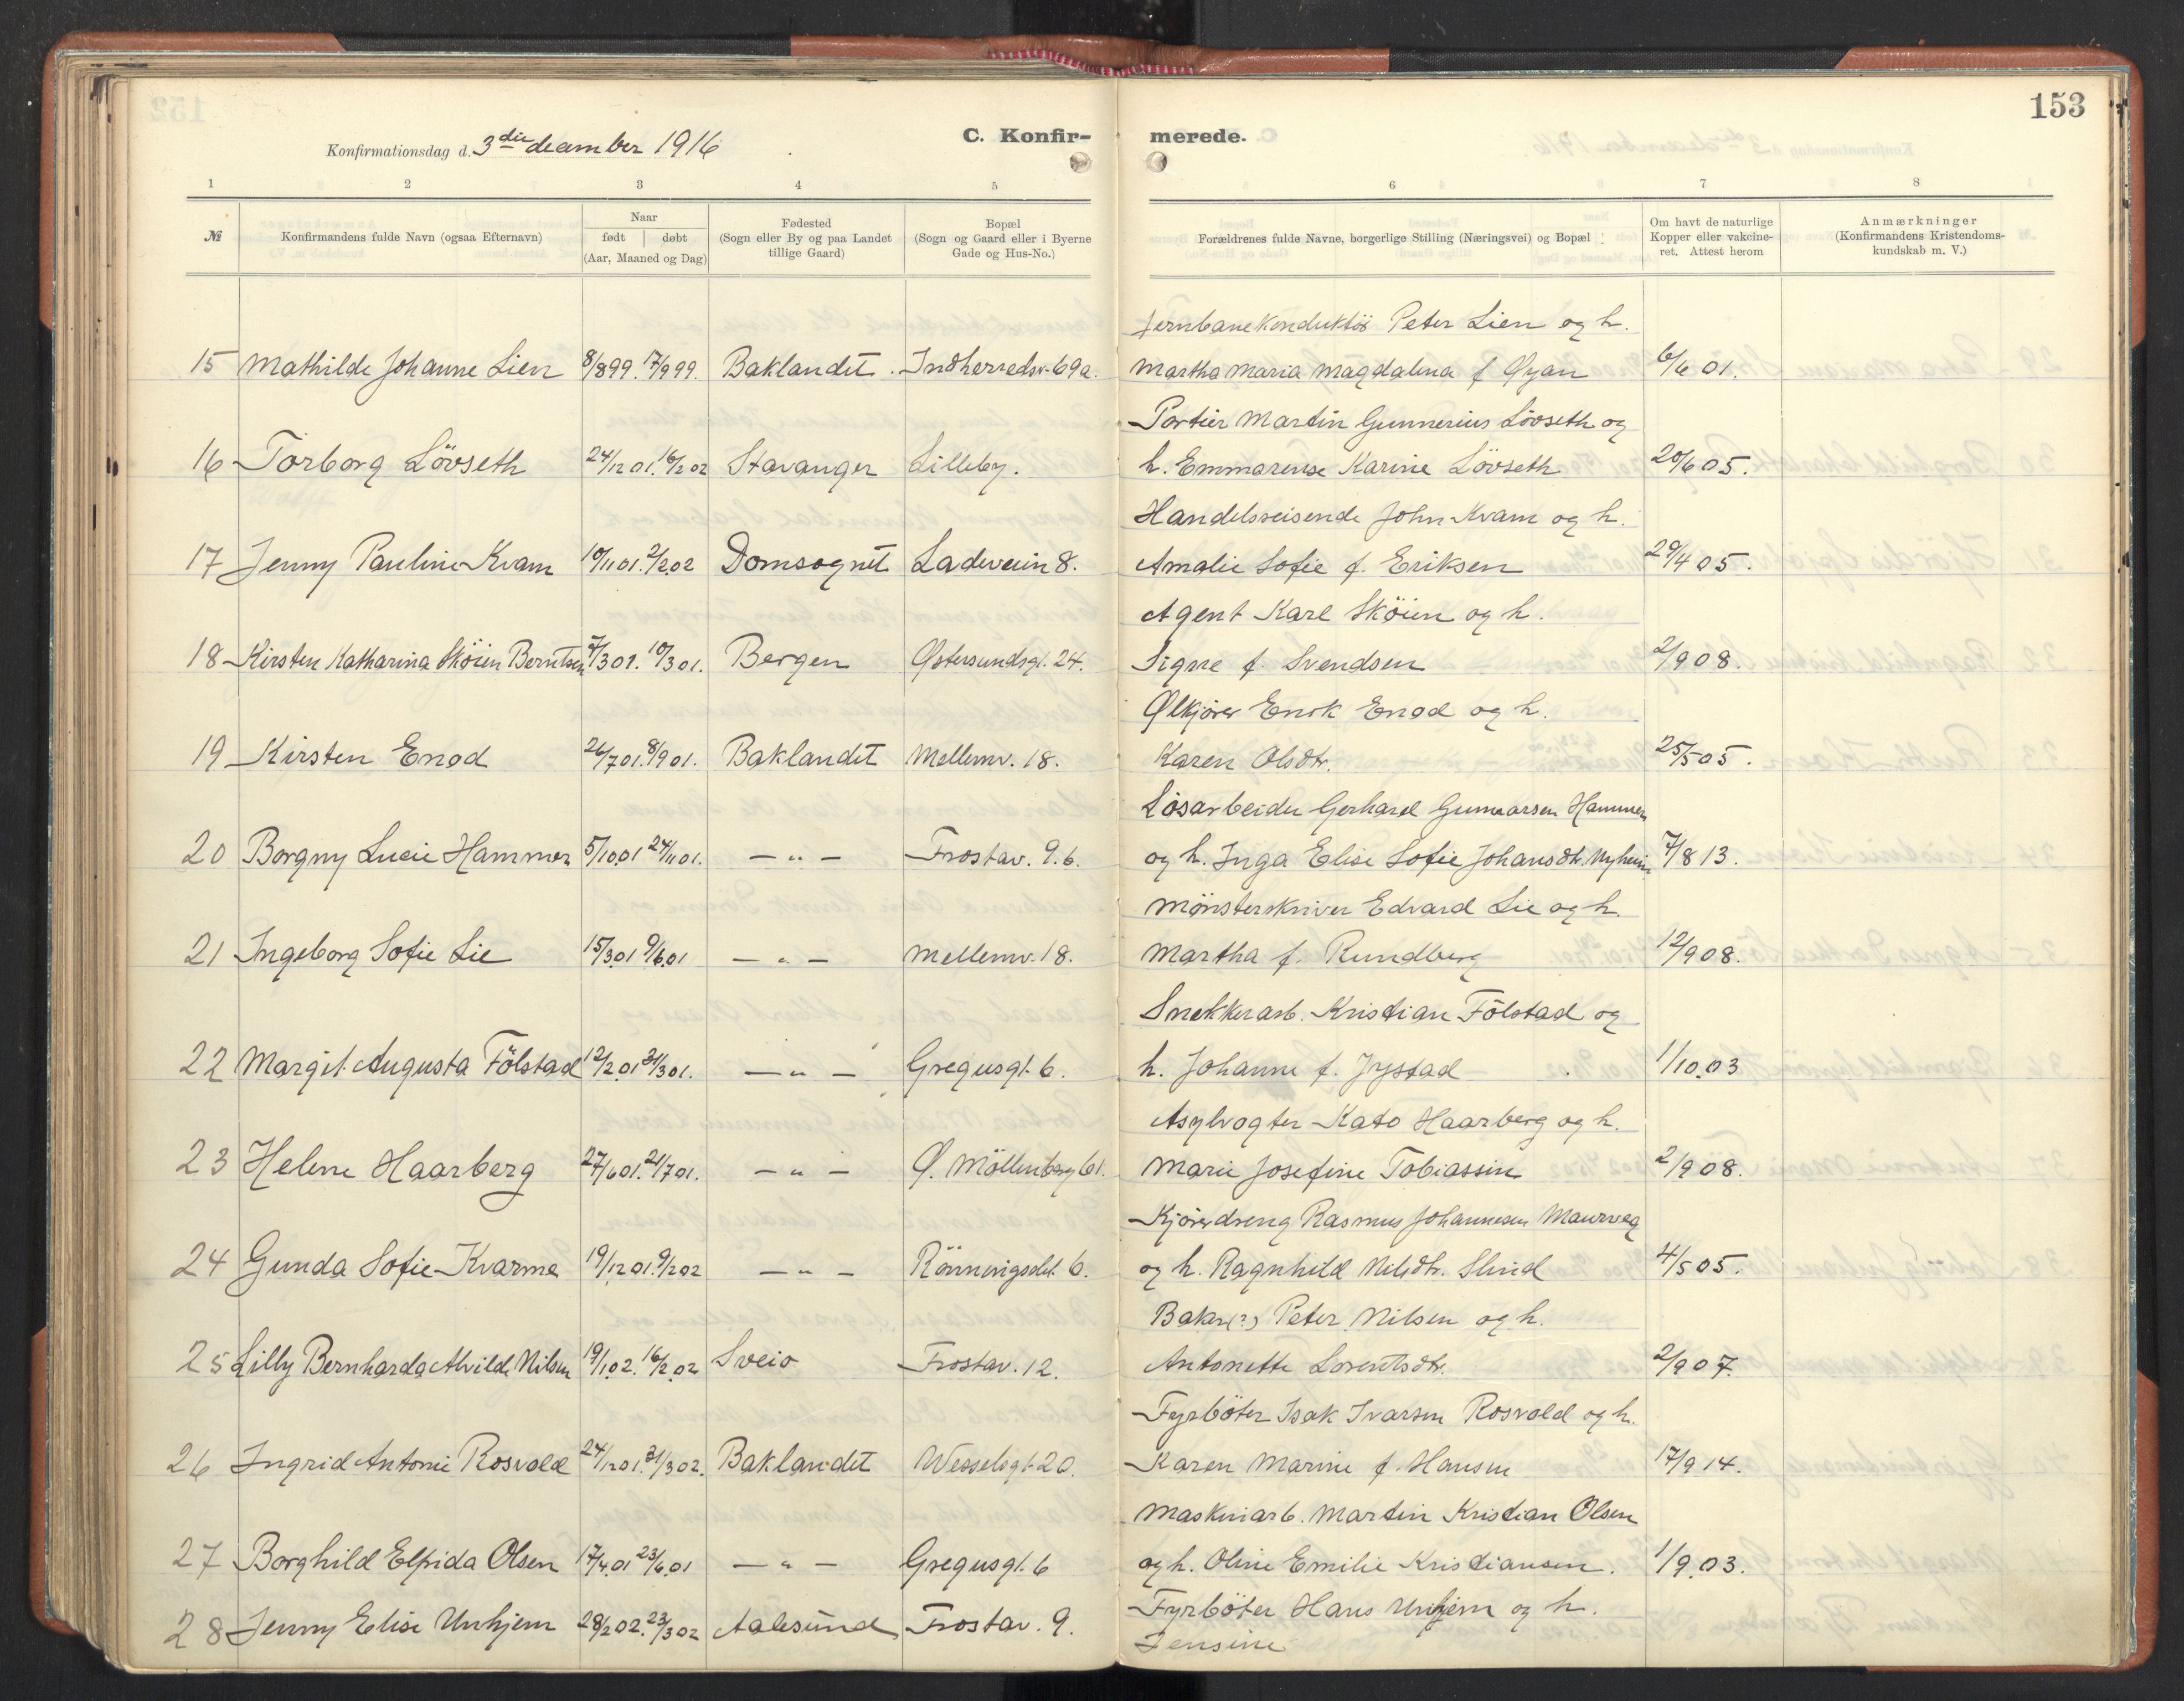 153
Konfirmationsdag d. 3die december 1916
C. Konfir-
merede.
1 2 3 4 5 6 7 8
№
Konfirmandens fulde Navn (ogsaa Efternavn)
Naar
født døbt
(Aar, Maaned og Dag)
Fødested
(Sogn eller By og paa Landet
tillige Gaard)
Bopæl
(Sogn og Gaard eller i Byerne
Gade og Hus-No.)
Forældrenes fulde Navne, borgerlige Stilling (Næringsvei) og Bopæl
Om havt de naturlige
Kopper eller vakcine-
ret. Attest herom
Anmærkninger
(Konfirmandens Kristendoms-
kundskab m. V.)
Jernbanekonduktör Peter Lien og h.
15 Mathilde Johanne Lien 8/8 99. 17/9 99. Baklandet. Indherredsv. 69a. Martha Maria Magdalena f. Øyan 6/6 01.
Portier Martin Gunnerius Lövseth og
16 Torborg Lövseth 24/12 01. 16/2 02 Stavanger Lilleby. h. Emmarense Karine Lövseth 20/6 05.
Handelsreisende John Kvam og h.
17 Jenny Pauline Kvam 10/11 01. 2/2 02 Domsognet Ladeveien 8. Amalie Sofie f. Eriksen 29/4 05.
Agent Karl Sköien og h.
18 Kirsten Katharina Sköien Berntsen 7/3 01. 10/3 01. Bergen Østersundsgt. 24. Signe f. Svendsen 2/9 08.
Ølkjører Enok Enod og h.
19 Kirsten Enod 26/7 01. 8/9 01. Baklandet Mellemv. 18. Karen Olsdtr. 25/5 05.
Løsarbeider Gerhard Gunnarsen Hammer
20 Borgny Lucie Hammer 5/10 01 24/11 01. — „ — Frostav. 9.b. og h. Inga Elise Sofie Johansdtr. Nyheim 7/8 13.
Mönsterskriver Edvard Lie og h.
21 Ingeborg Sofie Lie 15/3 01 9/6 01 — „ — Mellemv. 18. Martha f. Rundberg 12/9 08.
Snekkerarb. Kristian Fölstad og
22 Margit Augusta Fölstad 12/2 01 31/3 01. — „ — Gregusgt. 6. h. Johanne f. Jystad 1/10 03
Asylvogter Kato Haarberg og h.
23 Helene Haarberg 27/6 01. 21/7 01. — „ — Ø. Möllenberg 61. Marie Josefine Tobiassen 2/9 08.
Kjøredreng Rasmus Johannesen Maurveg
24 Gunda Sofie Kvarme 19/12 01. 9/2 02 — „ — Rönningsslet. 6. og h. Ragnhild Nilsdtr. Slind 4/5 05.
Baker(?) Peter Nilsen og h.
25 Lilly Bernharda Alvilde Nilsen 19/1 02. 16/2 02 Sveio Frostav. 12. Antonette Lorentsdtr. 2/9 07.
Fyrböter Isak Ivarsen Rosvold og h.
26 Ingrid Antonie Rosvold 24/12 01. 31/3 02. Baklandet Wesselsgt. 20. Karen Marine f. Hansen 17/9 14.
Maskinarb. Martin Kristian Olsen
27 Borghild Elfrida Olsen 17/4 01 23/6 01 — „ — Gregusgt. 6 og h. Oline Emilie Kristiansen. 1/9 03.
Fyrböter Hans Unhjem og h.
28 Jenny Elise Unhjem 28/2 02. 23/3 02 Aalesund Frostav. 9.
Jensine